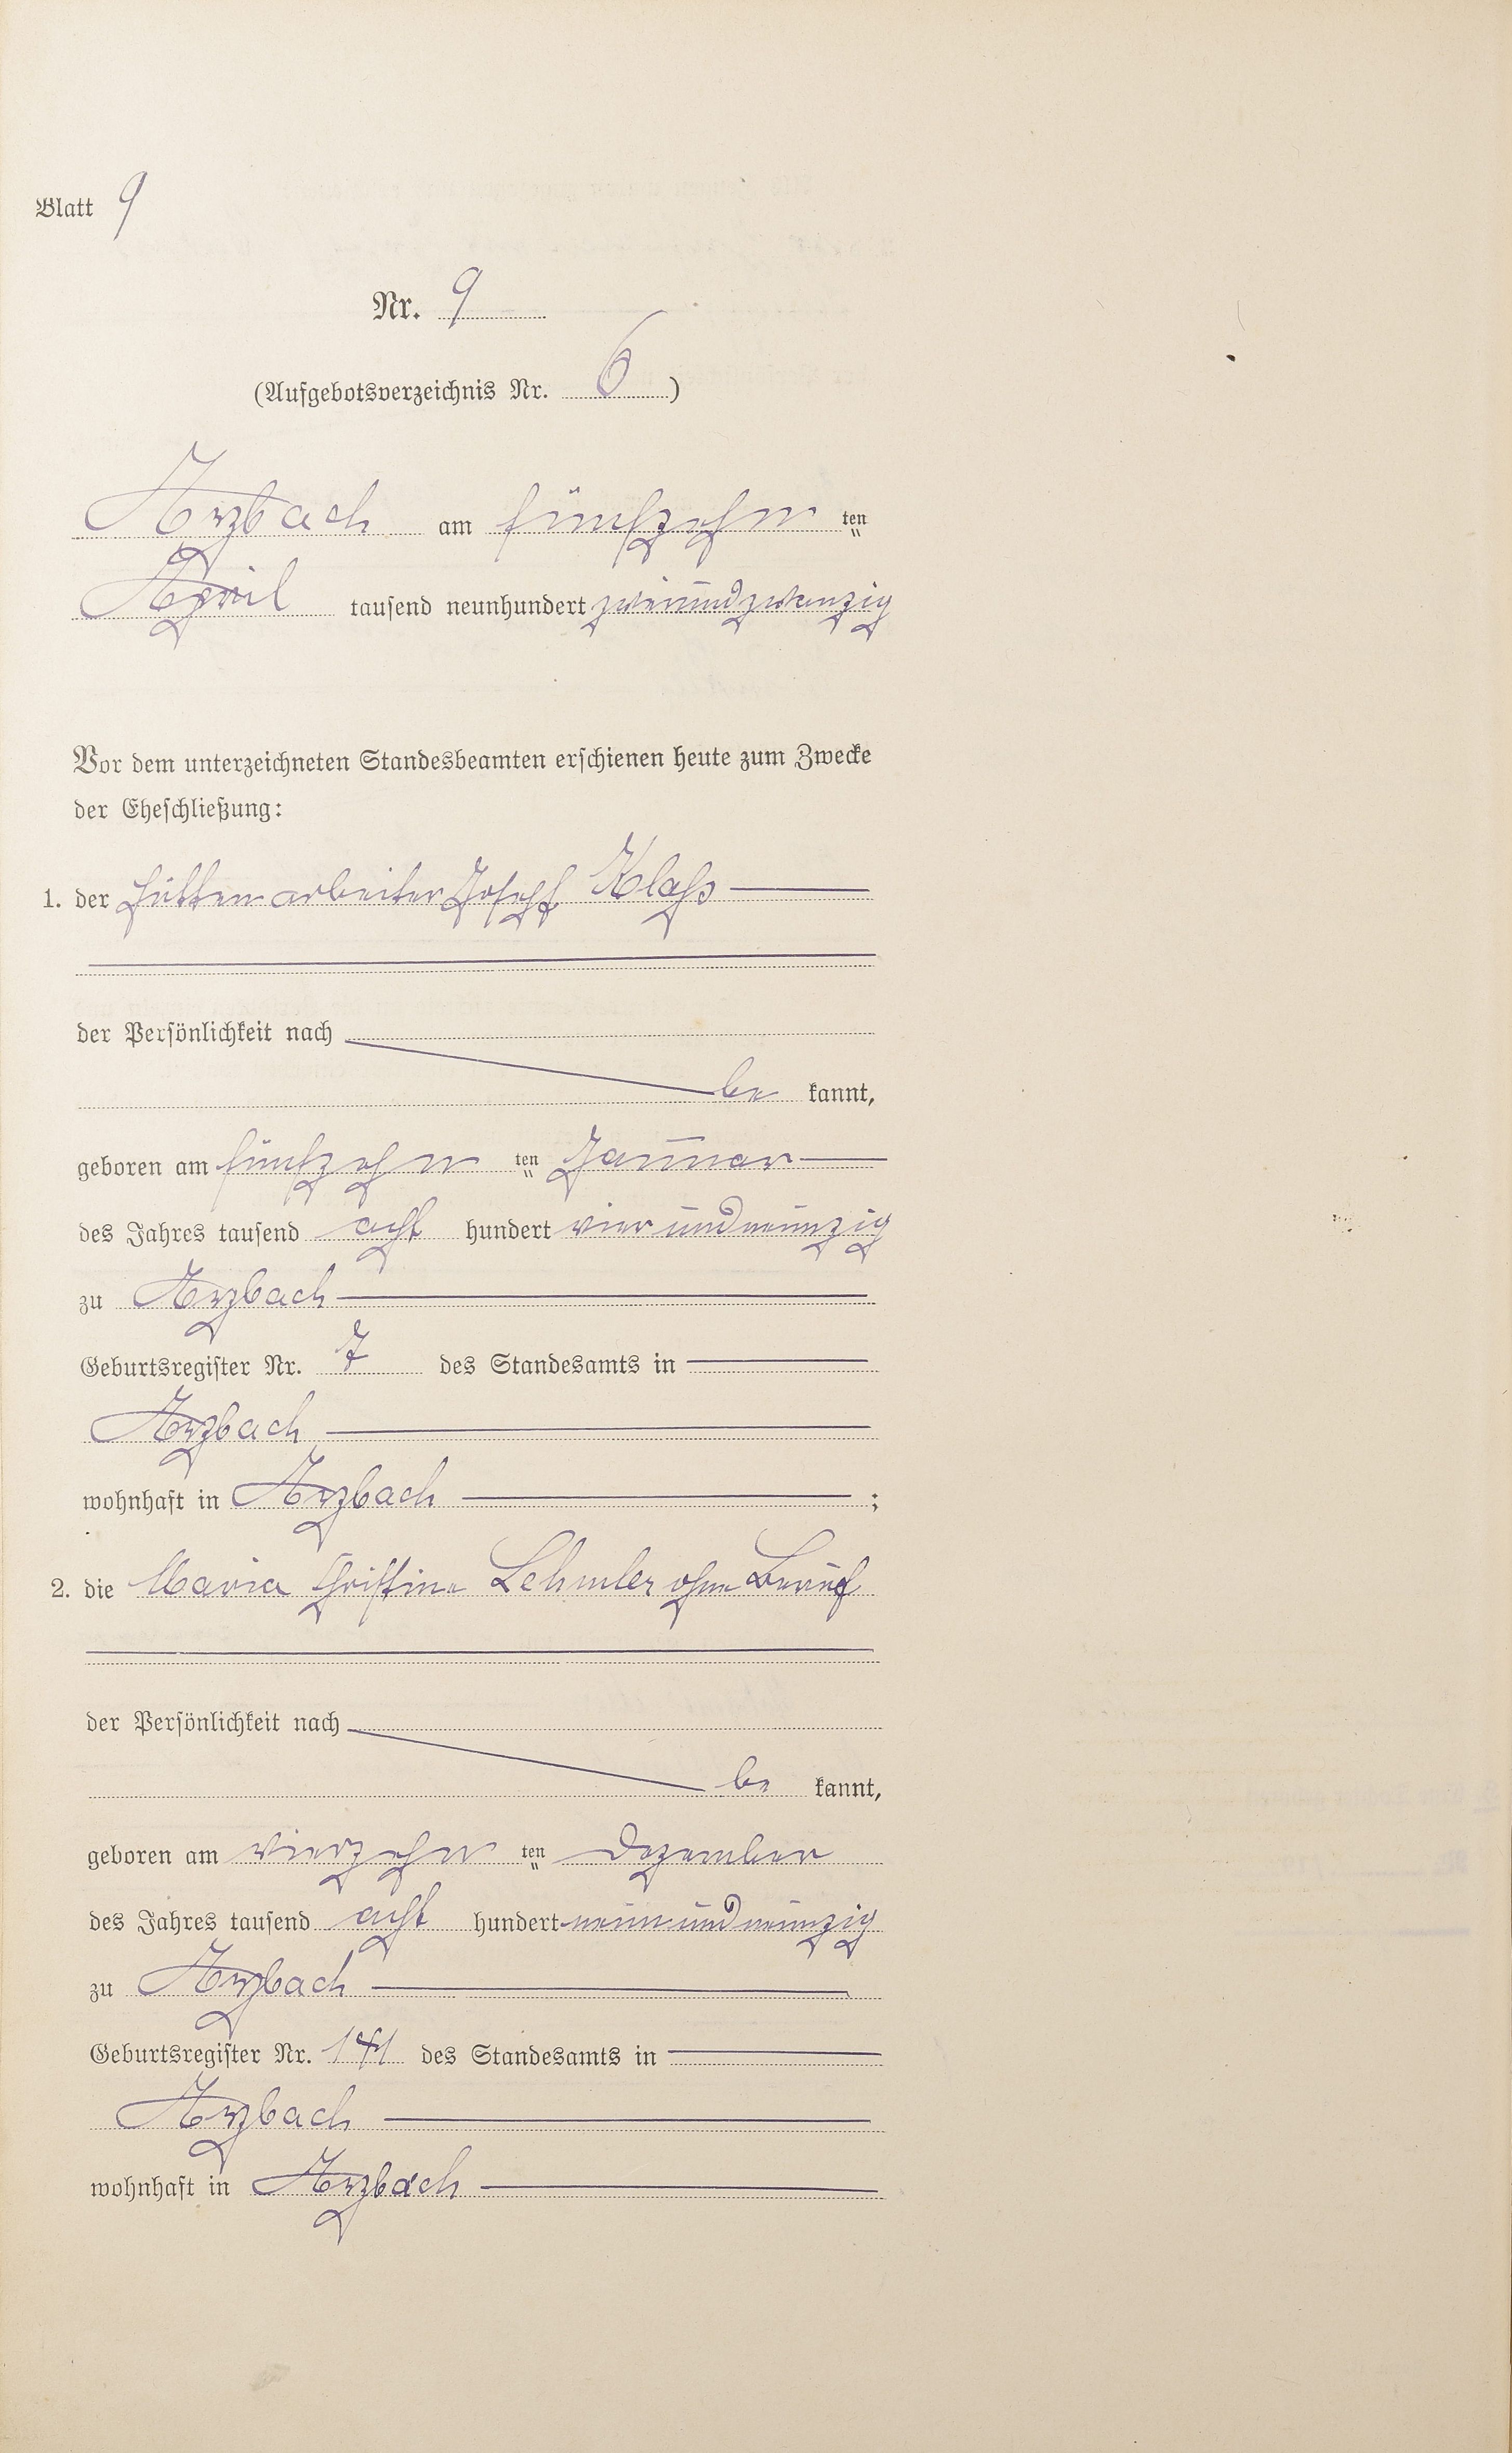 Blatt 9
Nr. 9
(Aufgebotsverzeichnis Nr. 6)
Arzbach am fünfzehn ten
April tausend neunhundert zweiundzwanzig
Vor dem unterzeichneten Standesbeamten erschienen heute zum Zwecke
der Eheschließung:
1. der Hüttenarbeiter Joseph Klaß
der Persönlichkeit nach
be kannt,
geboren am fünfzehn ten Januar
des Jahres tausend acht hundert vierundneunzig
zu Arzbach
Geburtsregister Nr. 7 des Standesamts in
Arzbach
wohnhaft in Arzbach ;
2. die Maria Christine Lehmler ohne Beruf
der Persönlichkeit nach
be kannt,
geboren am vierzehn ten Dezember
des Jahres tausend acht hundert neunundneunzig
zu Arzbach
Geburtsregister Nr. 141 des Standesamts in
Arzbach
wohnhaft in Arzbach